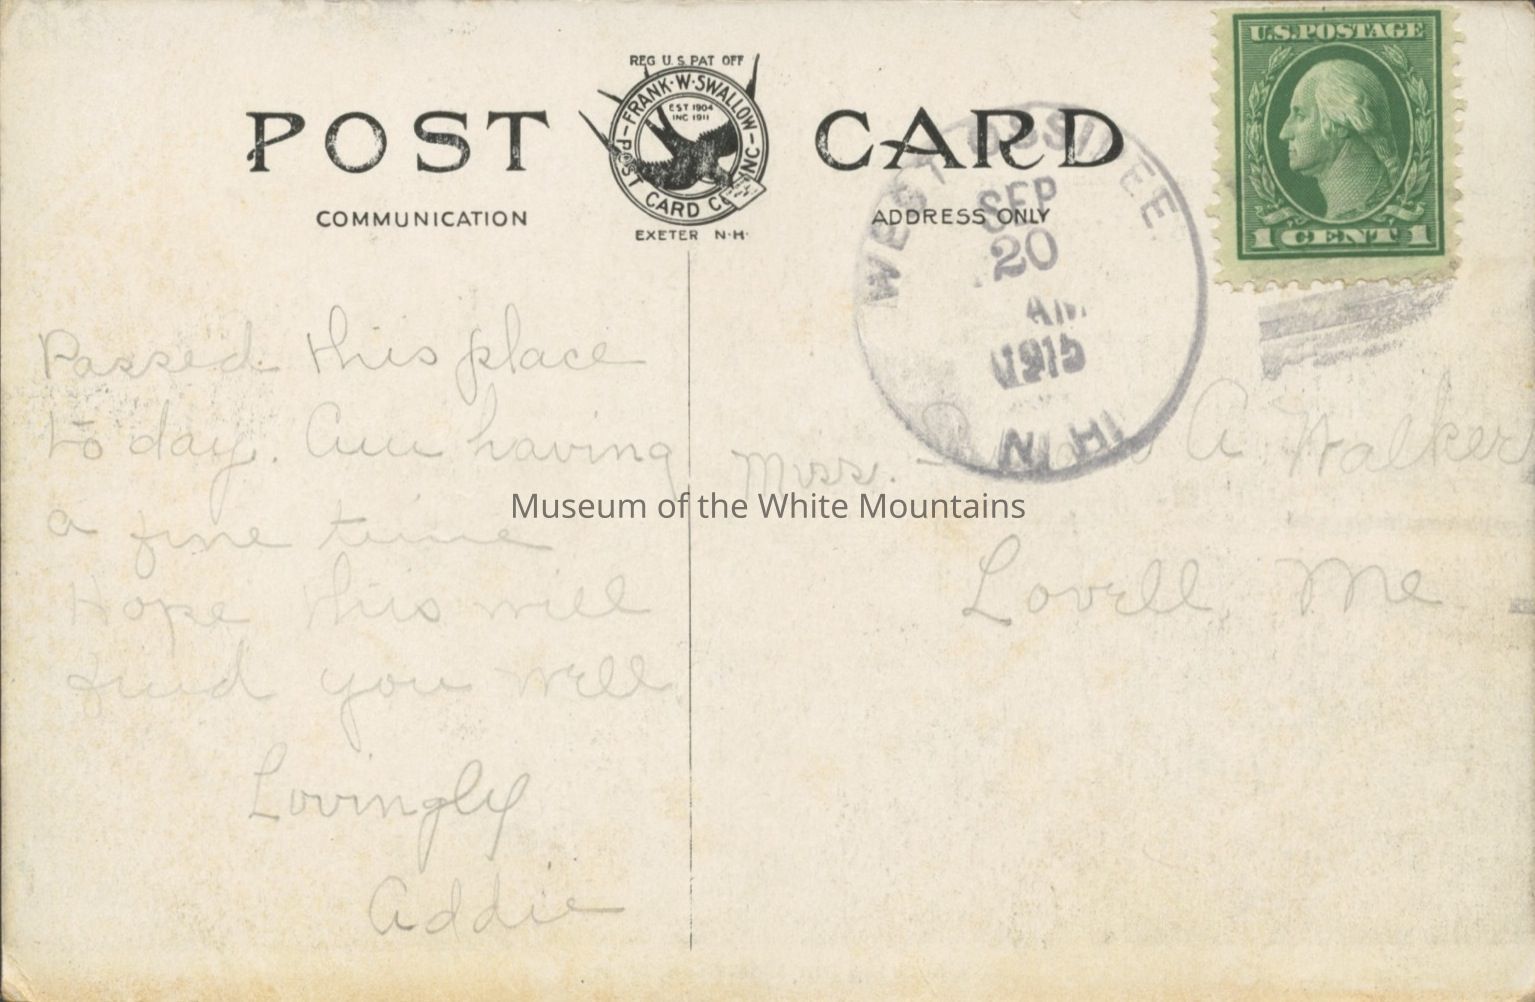 REG U.S. PAT OFF
FRANK·W·SWALLOW POST CARD CO INC
EST 1904
INC 1911
POST CARD
COMMUNICATION
EXETER N·H·
ADDRESS ONLY
U.S.POSTAGE
1 CENT 1
WEST OSSIPEE
SEP
20
AM
1915
N H
Passed this place
to day. Am having
a fine time
Hope this will
find you well.
Lovingly
Addie
Miss. A Walker
Lovell, Me
Museum of the White Mountains